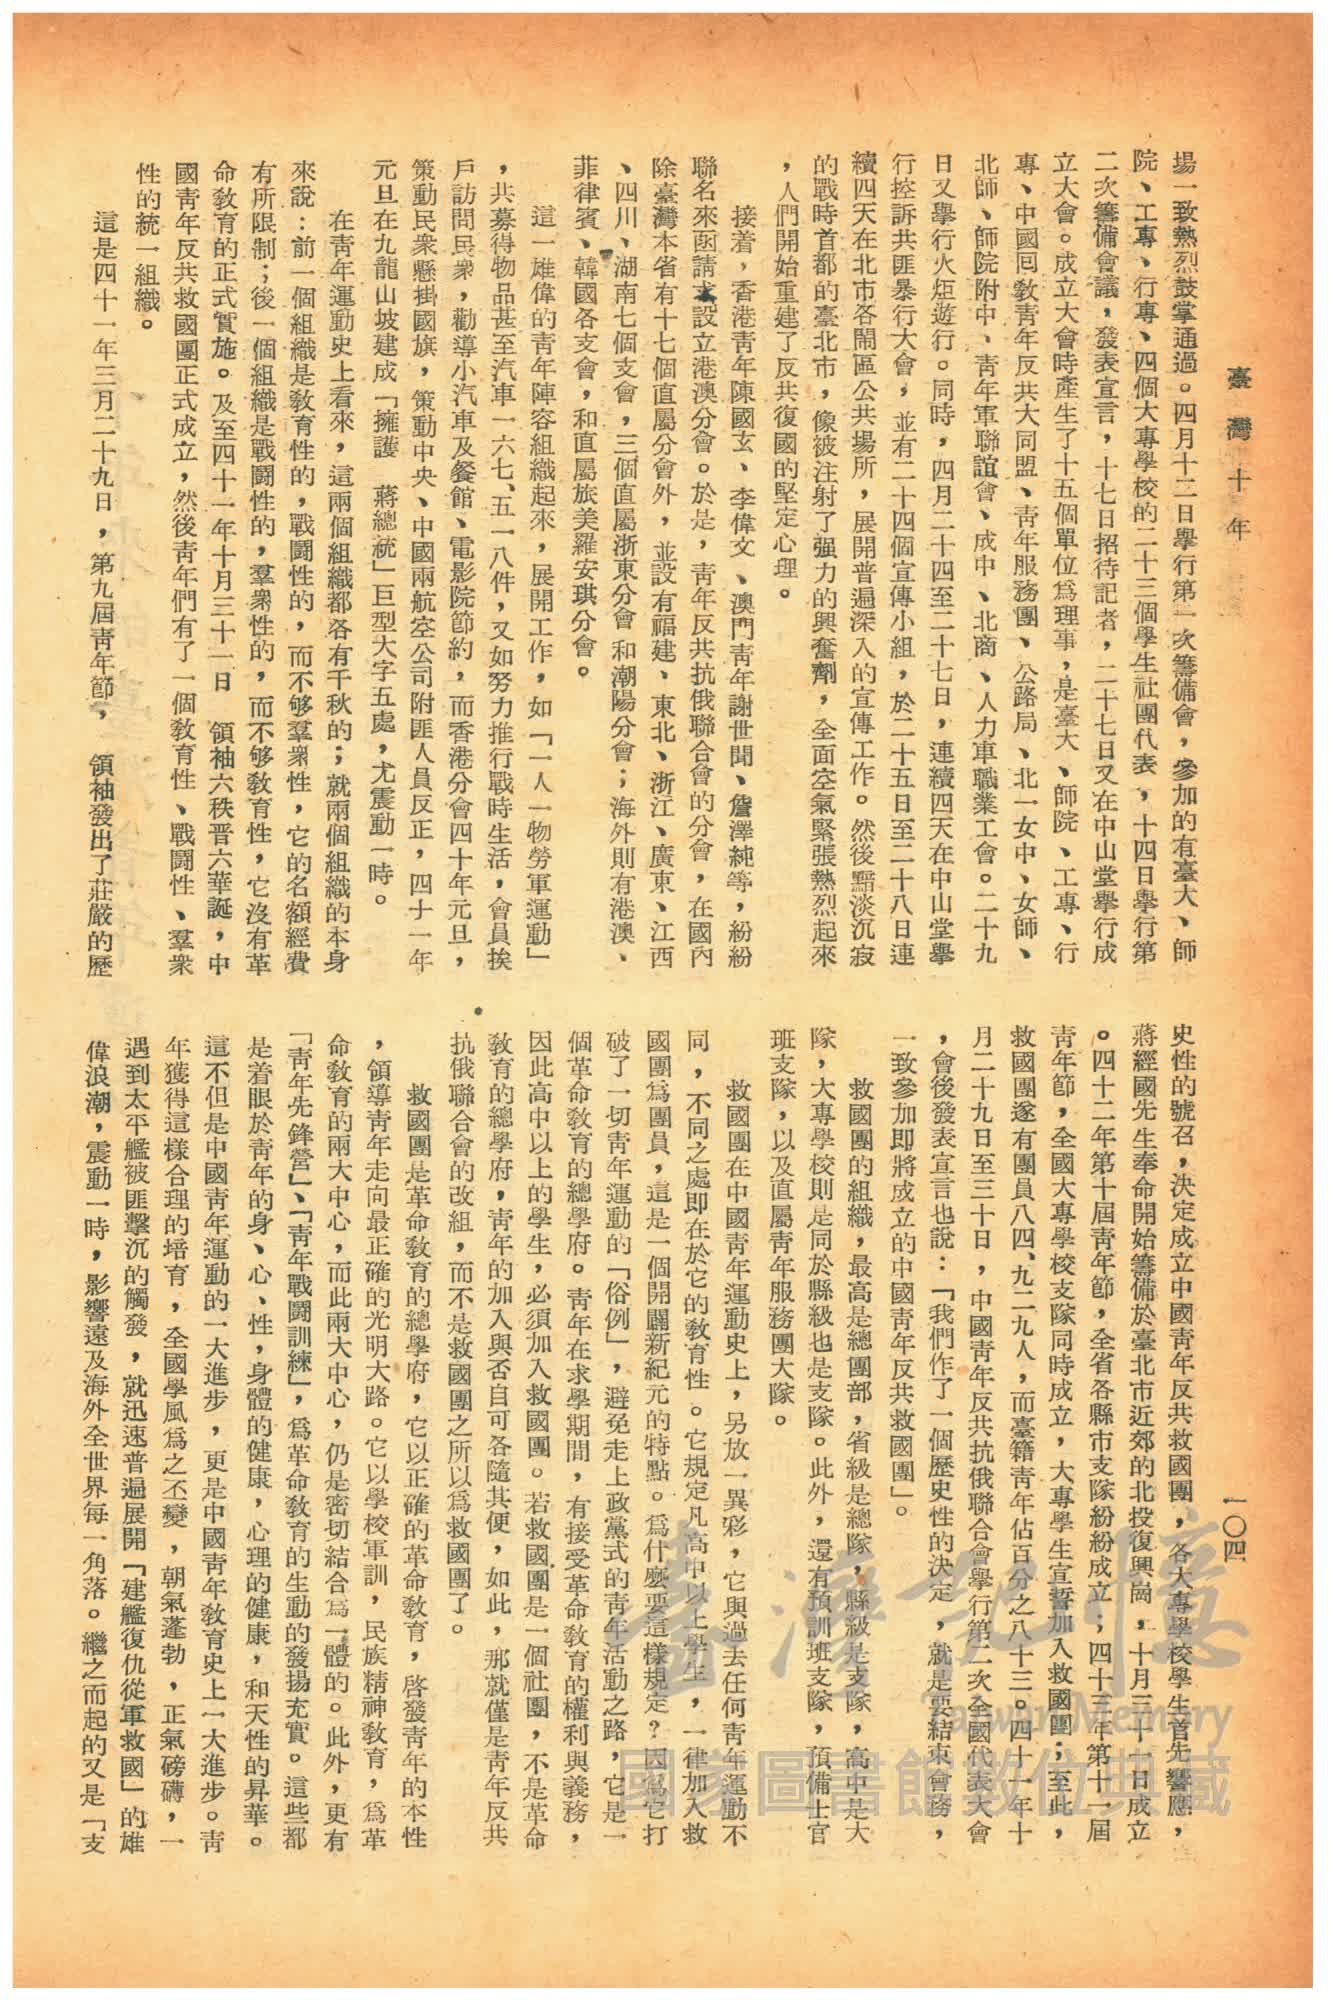 臺灣十年
一〇四
場一致熱烈鼓掌通過。四月十二日舉行第一次籌備會，參加的有臺大、師
院、工專、行專、四個大專學校的二十三個學生社團代表，十四日舉行第
二次籌備會議，發表宣言，十七日招待記者，二十七日又在中山堂舉行成
立大會。成立大會時產生了十五個單位爲理事，是臺大、師院、工專、行
專、中國囘教青年反共大同盟、青年服務團、公路局、北一女中、女師、
北師、師院附中、青年軍聯誼會、成中、北商、人力車職業工會。二十九
日又舉行火炬遊行。同時，四月二十四至二十七日，連續四天在中山堂舉
行控訴共匪暴行大會，並有二十四個宣傳小組，於二十五日至二十八日連
續四天在北市各鬧區公共場所，展開普遍深入的宣傳工作。然後黯淡沉寂
的戰時首都的臺北市，像被注射了强力的興奮劑，全面空氣緊張熱烈起來
，人們開始重建了反共復國的堅定心理。
接着，香港青年陳國玄、李偉文、澳門青年謝世聞、詹澤純等，紛紛
聯名來函請求設立港澳分會。於是，青年反共抗俄聯合會的分會，在國內
除臺灣本省有十七個直屬分會外，並設有福建、東北、浙江、廣東、江西
、四川、湖南七個支會，三個直屬浙東分會和潮陽分會；海外則有港澳、
菲律賓、韓國各支會，和直屬旅美羅安琪分會。
這一雄偉的青年陣容組織起來，展開工作，如「一人一物勞軍運動」
，共募得物品甚至汽車一六七、五一八件，又如努力推行戰時生活，會員挨
戶訪問民衆，勸導小汽車及餐館、電影院節約，而香港分會四十年元旦，
策動民衆懸掛國旗，策動中央、中國兩航空公司附匪人員反正，四十一年
元旦在九龍山坡建成「擁護 蔣總統」巨型大字五處，尤震動一時。
在青年運動史上看來，這兩個組織都各有千秋的；就兩個組織的本身
來說：前一個組織是教育性的，戰鬪性的，而不够羣衆性，它的名額經費
有所限制；後一個組織是戰鬪性的，羣衆性的，而不够教育性，它沒有革
命教育的正式實施。及至四十一年十月三十一日 領袖六秩晋六華誕，中
國青年反共救國團正式成立，然後青年們有了一個教育性、戰鬪性、羣衆
性的統一組織。
這是四十一年三月二十九日，第九屆青年節， 領袖發出了莊嚴的歷
史性的號召，決定成立中國青年反共救國團，各大專學校學生首先響應，
蔣經國先生奉命開始籌備於臺北市近郊的北投復興崗，十月三十一日成立
。四十二年第十屆青年節，全省各縣市支隊紛紛成立；四十三年第十一屆
青年節，全國大專學校支隊同時成立，大專學生宣誓加入救國團；至此，
救國團遂有團員八四、九二九人，而臺籍青年佔百分之八十三。四十一年十
月二十九日至三十日，中國青年反共抗俄聯合會舉行第二次全國代表大會
，會後發表宣言也說：「我們作了一個歷史性的決定，就是要結束會務，
一致參加即將成立的中國青年反共救國團」。
救國團的組織，最高是總團部，省級是總隊，縣級是支隊，高中是大
隊，大專學校則是同於縣級也是支隊。此外，還有預訓班支隊，預備士官
班支隊，以及直屬青年服務團大隊。
救國團在中國青年運動史上，另放一異彩，它與過去任何青年運動不
同，不同之處即在於它的教育性。它規定凡高中以上學生，一律加入救
國團爲團員，這是一個開闢新紀元的特點。爲什麼要這樣規定？因爲它打
破了一切青年運動的「俗例」，避免走上政黨式的青年活動之路，它是一
個革命教育的總學府。青年在求學期間，有接受革命教育的權利與義務，
因此高中以上的學生，必須加入救國團。若救國團是一個社團，不是革命
教育的總學府，青年的加入與否自可各隨其便，如此，那就僅是青年反共
抗俄聯合會的改組，而不是救國團之所以爲救國團了。
救國團是革命教育的總學府，它以正確的革命教育，啓發青年的本性
，領導青年走向最正確的光明大路。它以學校軍訓，民族精神教育，爲革
命教育的兩大中心，而此兩大中心，仍是密切結合爲一體的。此外，更有
「青年先鋒營」、「青年戰鬪訓練」，爲革命教育的生動的發揚充實。這些都
是着眼於青年的身、心、性，身體的健康，心理的健康，和天性的昇華。
這不但是中國青年運動的一大進步，更是中國青年教育史上一大進步。青
年獲得這樣合理的培育，全國學風爲之丕變，朝氣蓬勃，正氣磅礴，一
遇到太平艦被匪擊沉的觸發，就迅速普遍展開「建艦復仇從軍救國」的雄
偉浪潮，震動一時，影響遠及海外全世界每一角落。繼之而起的又是「支
臺灣記憶
Taiwan Memory
國家圖書館數位典藏